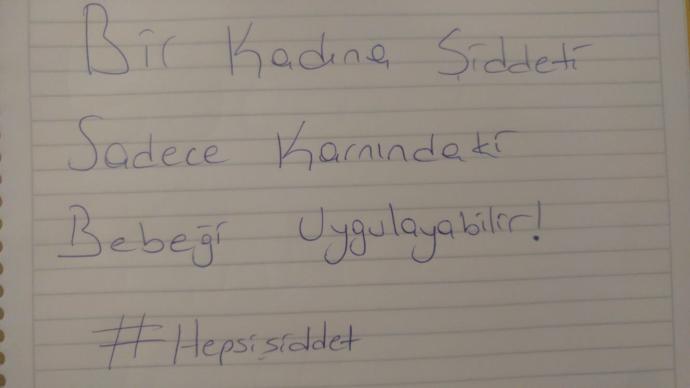 Bir Kadına Şiddeti
Sadece Karnındaki
Bebeği Uygulayabilir!
#Hepsişiddet